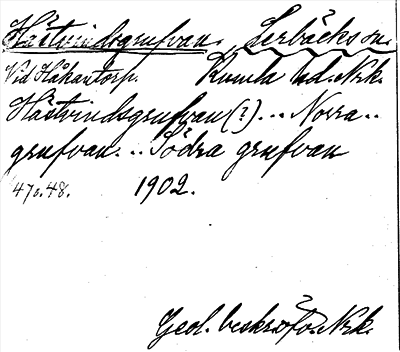 Hästvindsgrufvan. Lerbäcks sn.
Vid Håkantorp. Kumla hd. Nrk.
Hästvindsgrufvan(?)... Norra..
grufvan... Södra grufvan
47o.48. 1902.
Geol. beskr. öfv. Nrk.